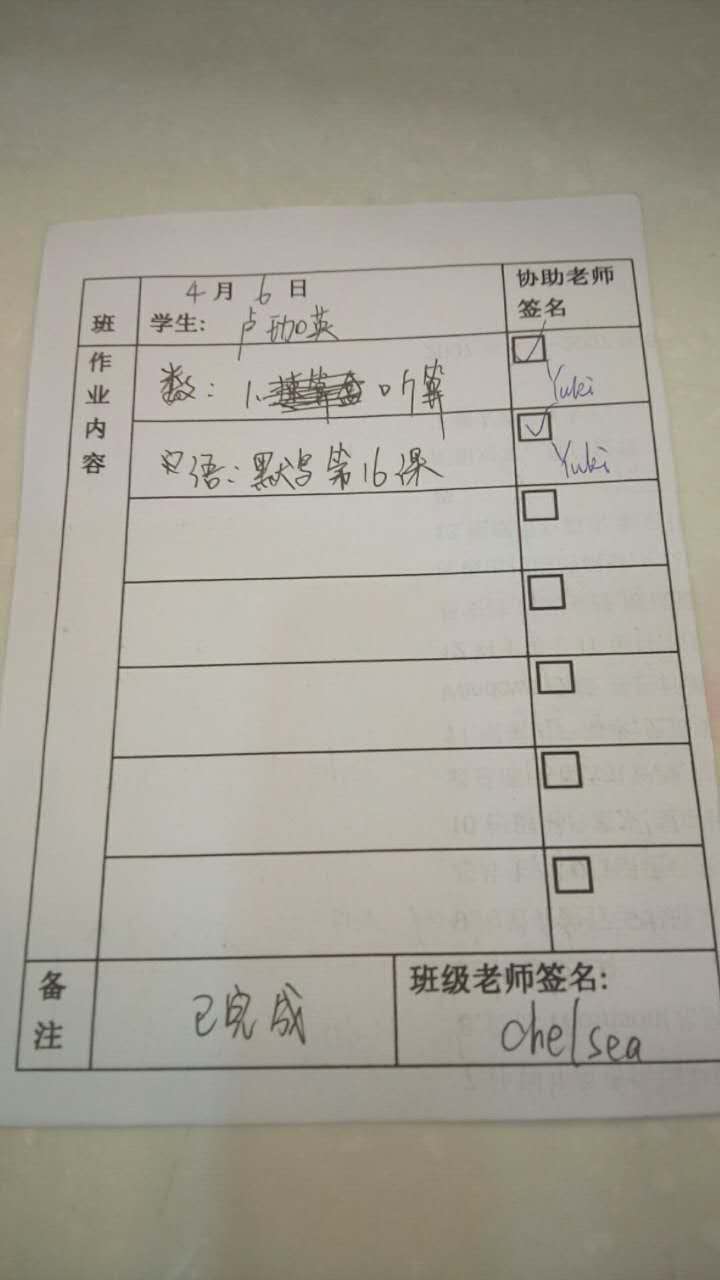 4月6日
协助老师
签名
班
学生: 卢珈英
作业内容
数: 1. 口算
Yuki
语: 默写第16课
Yuki
备注
已完成
班级老师签名:
chelsea